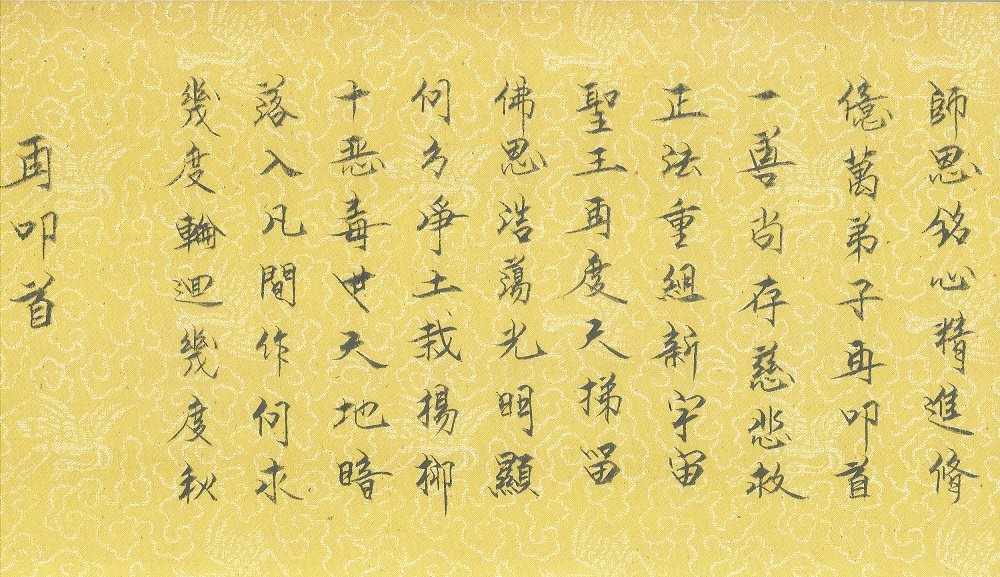 再叩首
幾度輪迴幾度秋
落入凡間作何求
十恶毒世天地暗
何方淨土栽揚柳
佛恩浩蕩光明顯
聖王再度天梯留
正法重組新宇宙
一善尚存慈悲救
億萬弟子再叩首
師恩銘心精進修